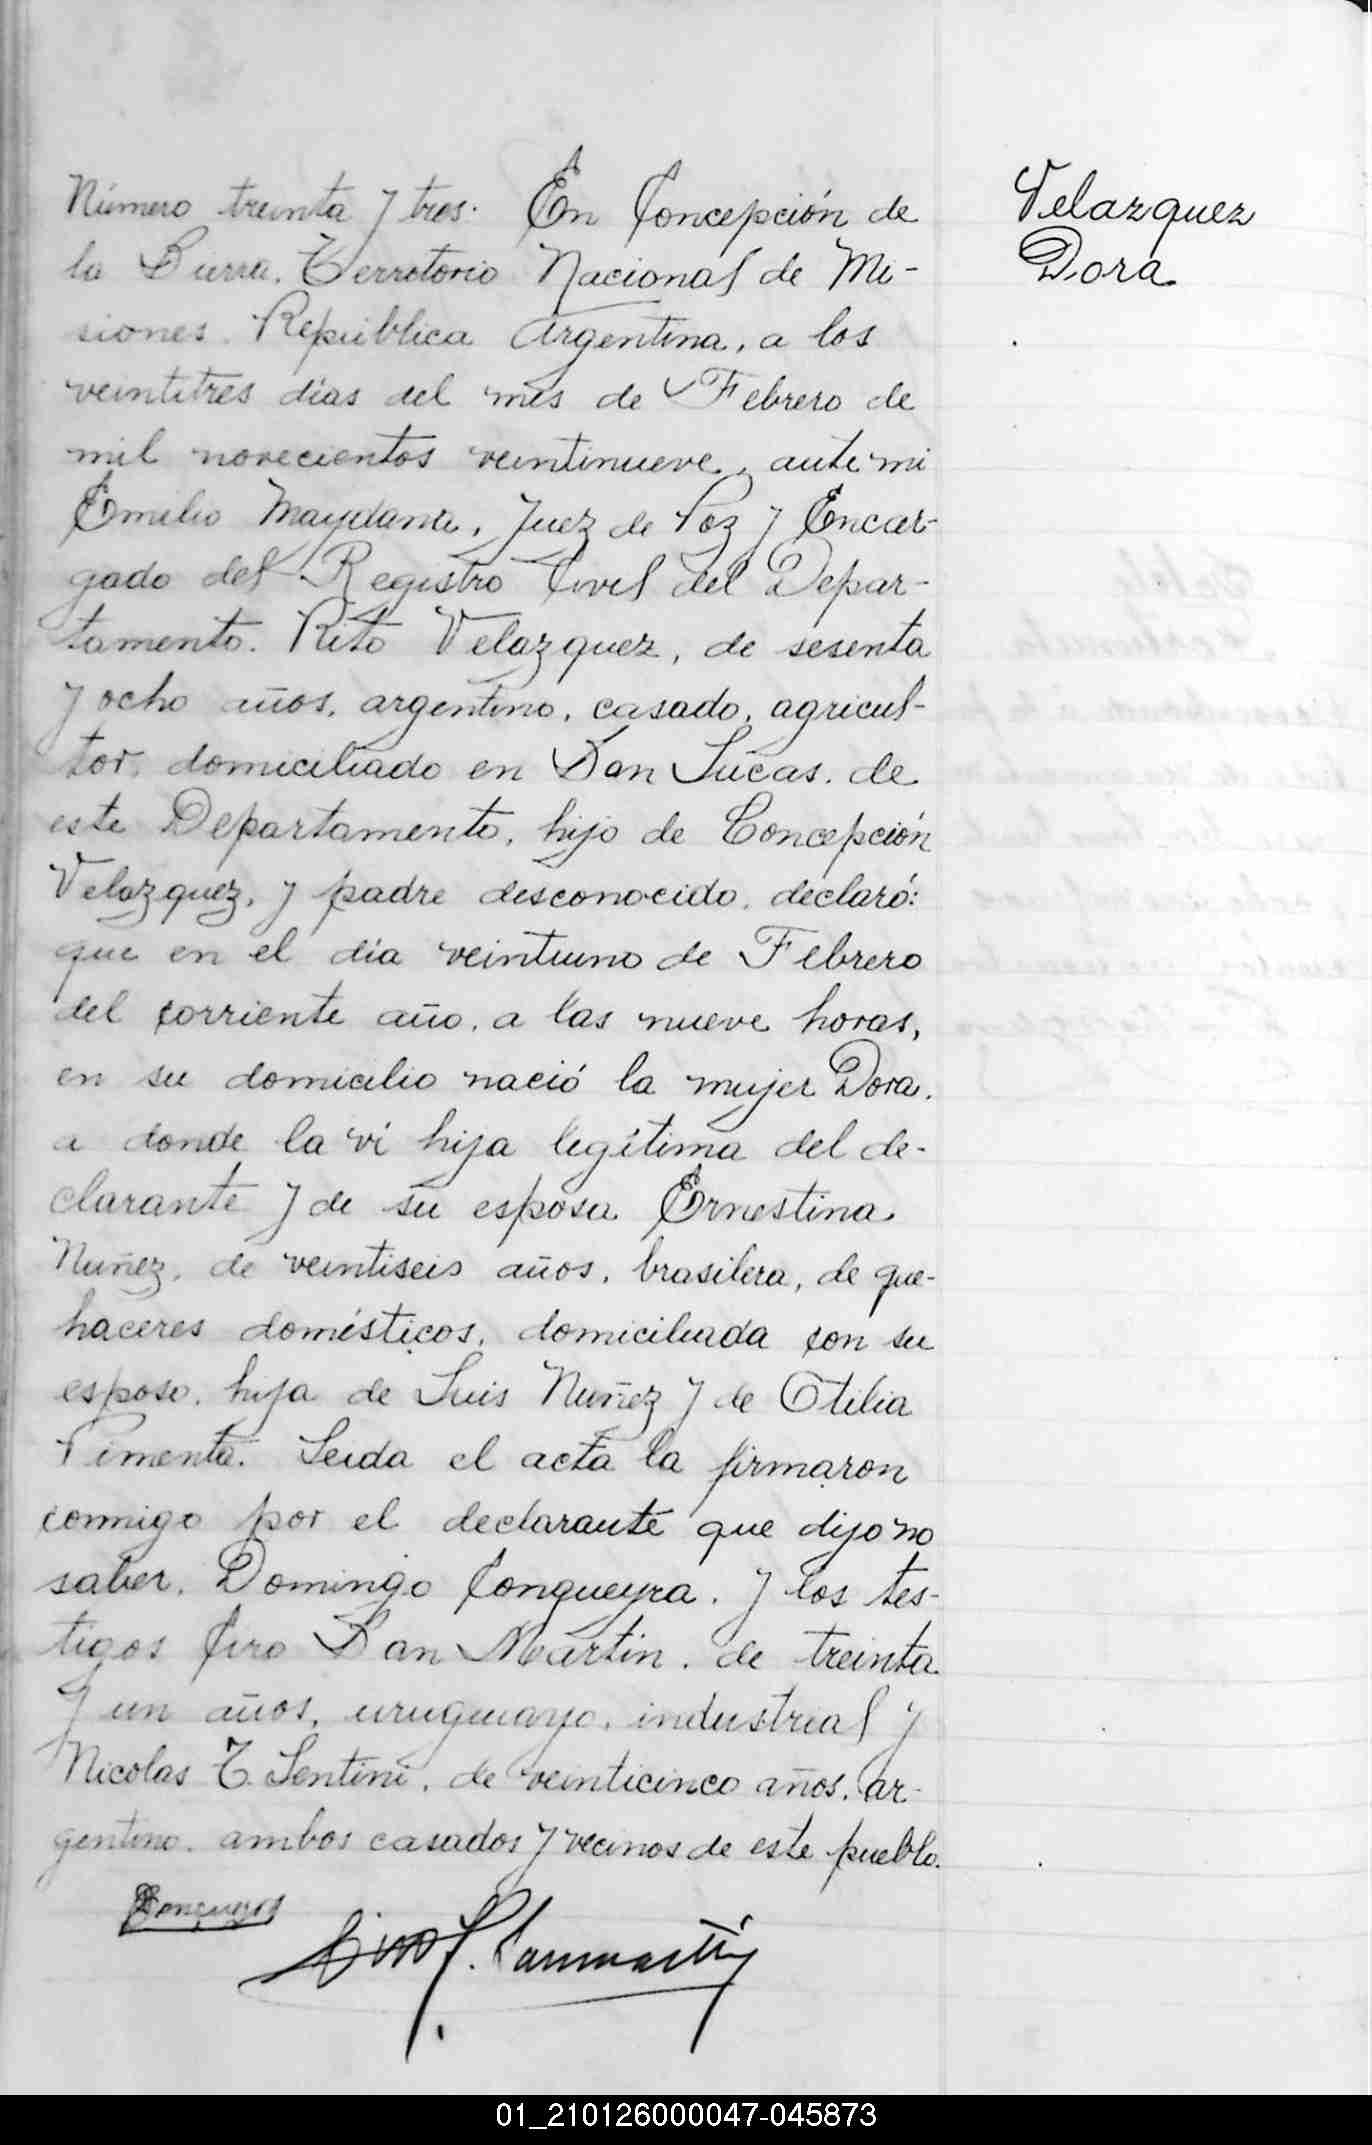 Número treinta y tres. En Concepción de
la Sierra, Territorio Nacional de Mi-
siones, República Argentina, a los
veintitres días del mes de Febrero de
mil novecientos veintinueve, ante mi
Emilio Maydana, Juez de Paz y Encar-
gado del Registro Civil del Depar-
tamento. Rito Velazquez, de sesenta
y ocho años, argentino, casado, agricul-
tor, domiciliado en San Lucas, de
este Departamento, hijo de Concepción
Velazquez, y padre desconocido, declaró:
que en el día veintiuno de Febrero
del corriente año, a las nueve horas,
en su domicilio nació la mujer Dora,
a donde la ví hija legítima del de-
clarante y de su esposa Ernestina
Nuñez, de veintiseis años, brasilera, de que-
haceres domésticos, domiciliada con su
esposo, hija de Luis Nuñez y de Otilia
Pimenta. Leida el acta la firmaron
conmigo por el declarante que dijo no
saber, Domingo Congueyra, y los tes-
tigos Ciro San Martin, de treinta
y un años, uruguayo, industrial y
Nicolas T. Sentini, de veinticinco años, ar-
gentino, ambos casados y vecinos de este pueblo.
Velazquez
Dora
01_210126000047-045873